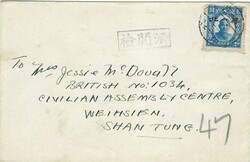 檢閲濟
To Mrs Jessie McDougall
BRITISH No: 1034,
CIVILIAN ASSEMBLY CENTRE,
WEIHSIEN,
SHANTUNG.
47